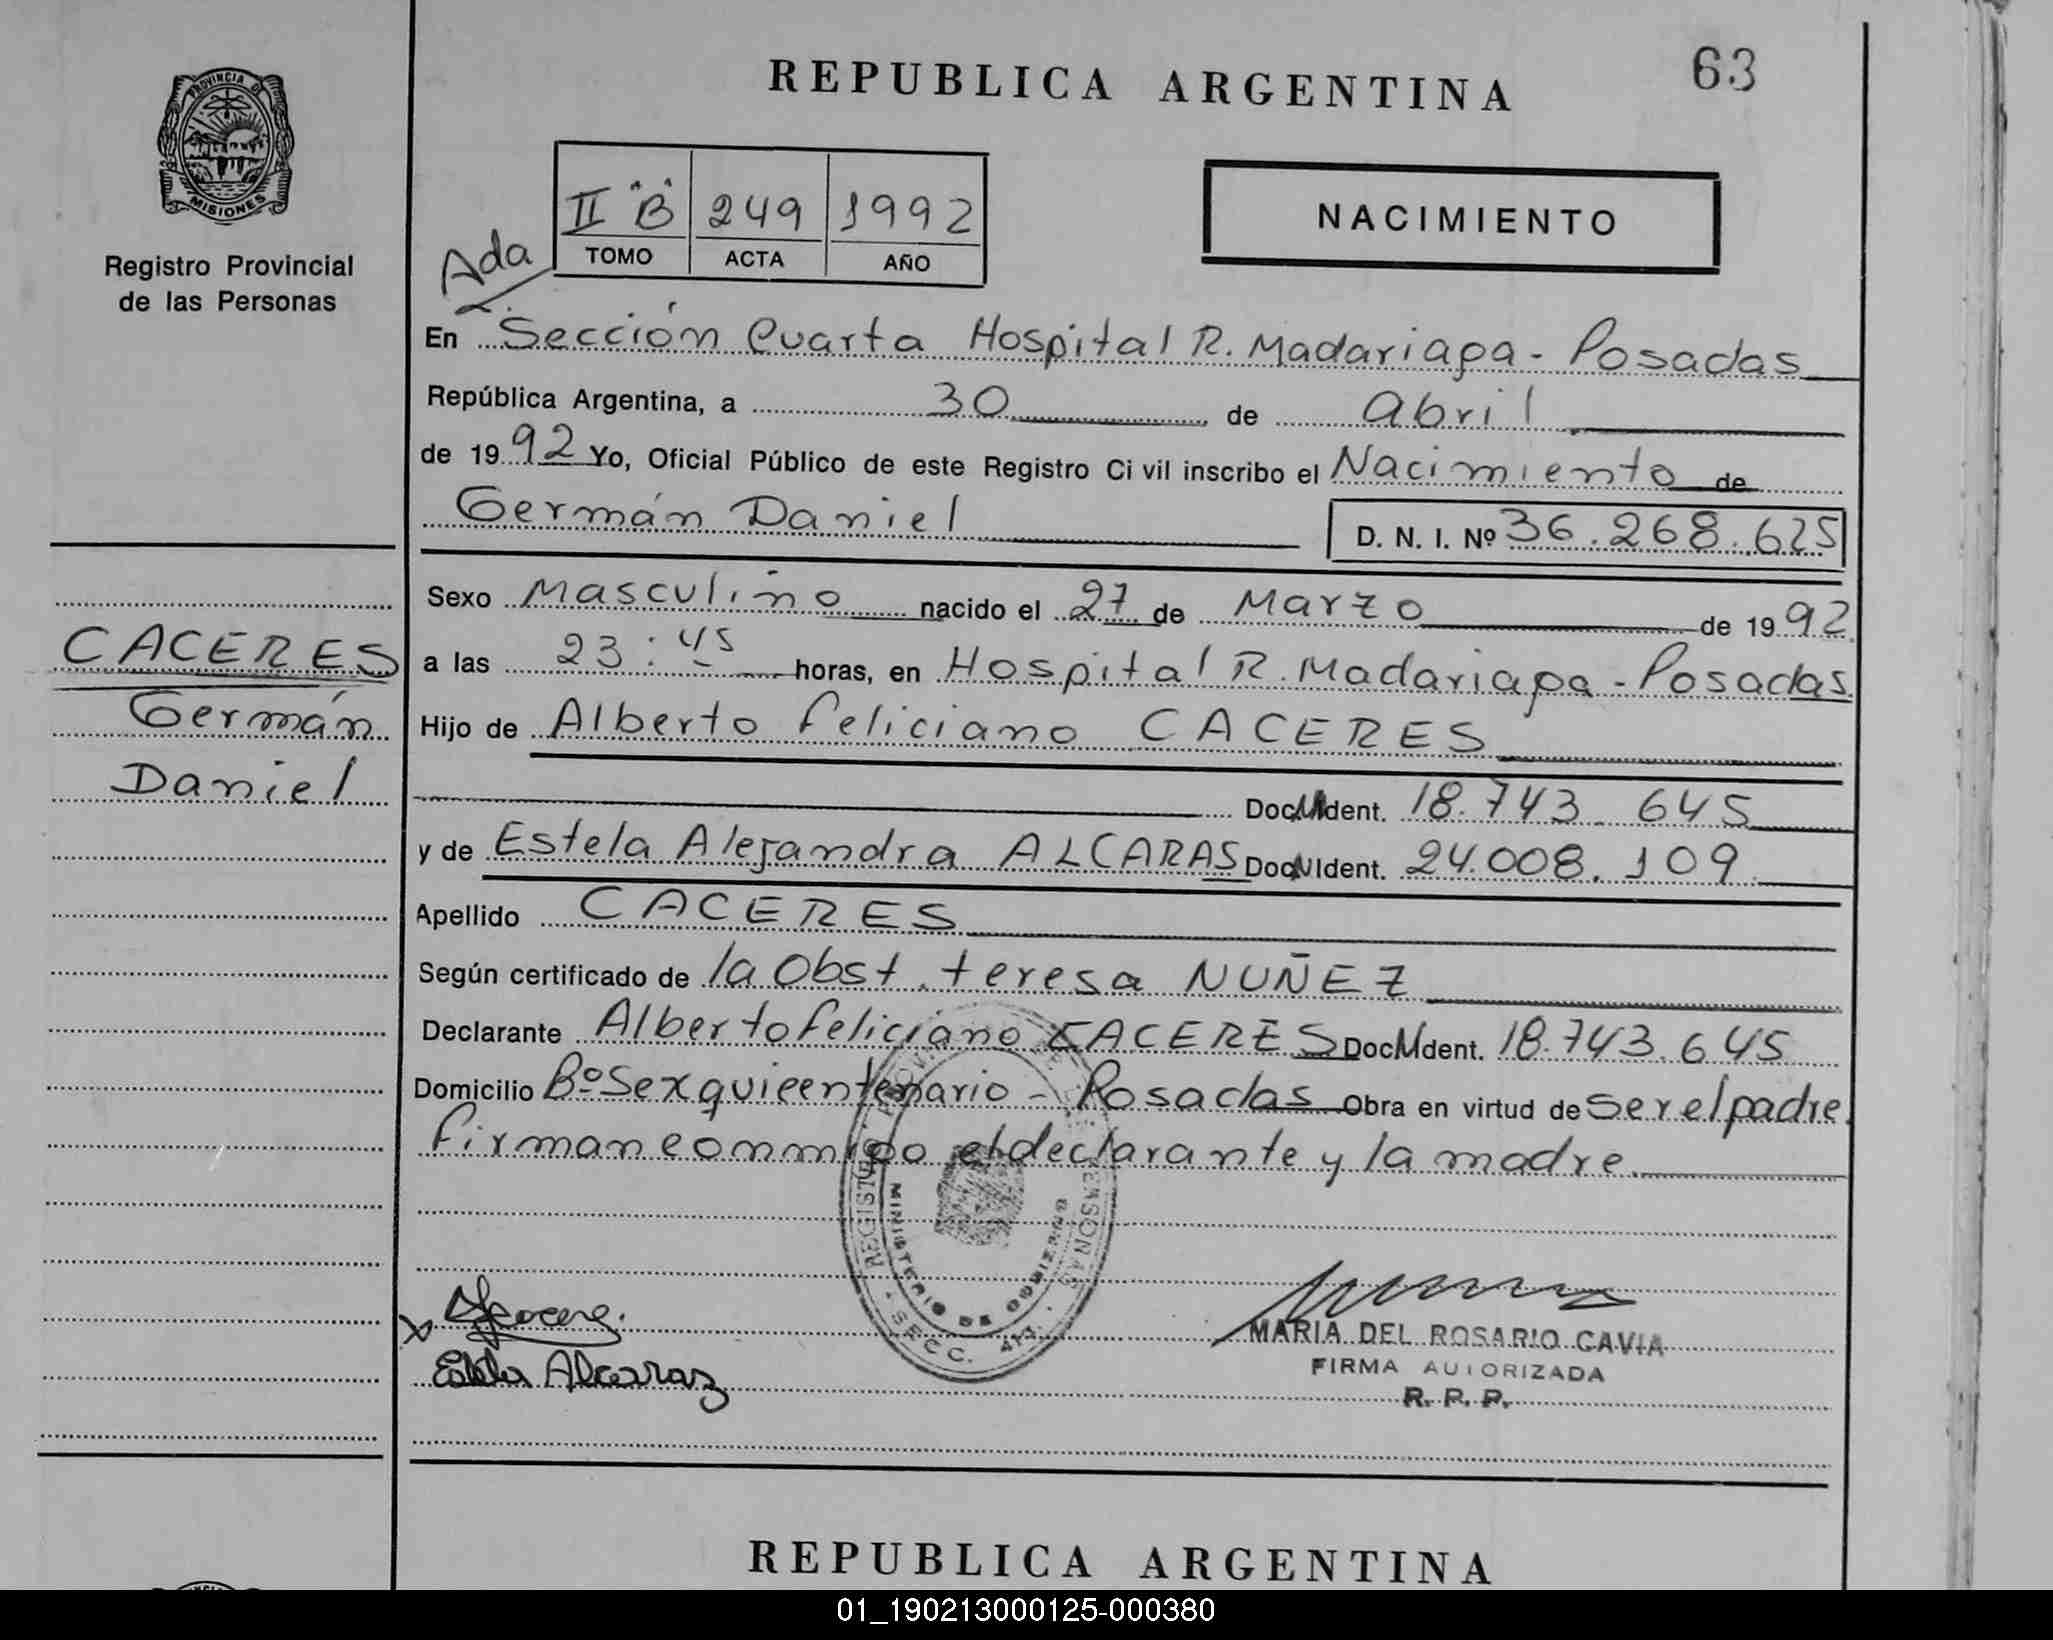 REPUBLICA ARGENTINA
63
PROVINCIA DE
MISIONES
Registro Provincial
de las Personas
II "B" 249 1992
TOMO ACTA AÑO
NACIMIENTO
Ada
En Sección Cuarta Hospital R. Madariaga - Posadas
República Argentina, a 30 de Abril
de 1992 Yo, Oficial Público de este Registro Ci vil inscribo el Nacimiento de
Germán Daniel D. N. I. Nº 36.268.625
Sexo Masculino nacido el 27 de Marzo de 1992
a las 23:45 horas, en Hospital R. Madariaga - Posadas
Hijo de Alberto Feliciano CACERES
Doc. Ident. 18.743.645
y de Estela Alejandra ALCARAS Doc. Ident. 24.008.109
Apellido CACERES
Según certificado de la Obst. teresa NUÑEZ
Declarante Alberto Feliciano CACERES Doc. Ident. 18.743.645
Domicilio Bº Sexquicentenario - Posadas Obra en virtud de Ser el padre.
Firman conmigo el declarante y la madre.
CACERES
Germán
Daniel
MINISTERIO DE GOBIERNO
SECC. 4ta.
Estela Alcaraz
MARIA DEL ROSARIO GAVIA
FIRMA AUTORIZADA
R. P. P.
REPUBLICA ARGENTINA
01_190213000125-000380